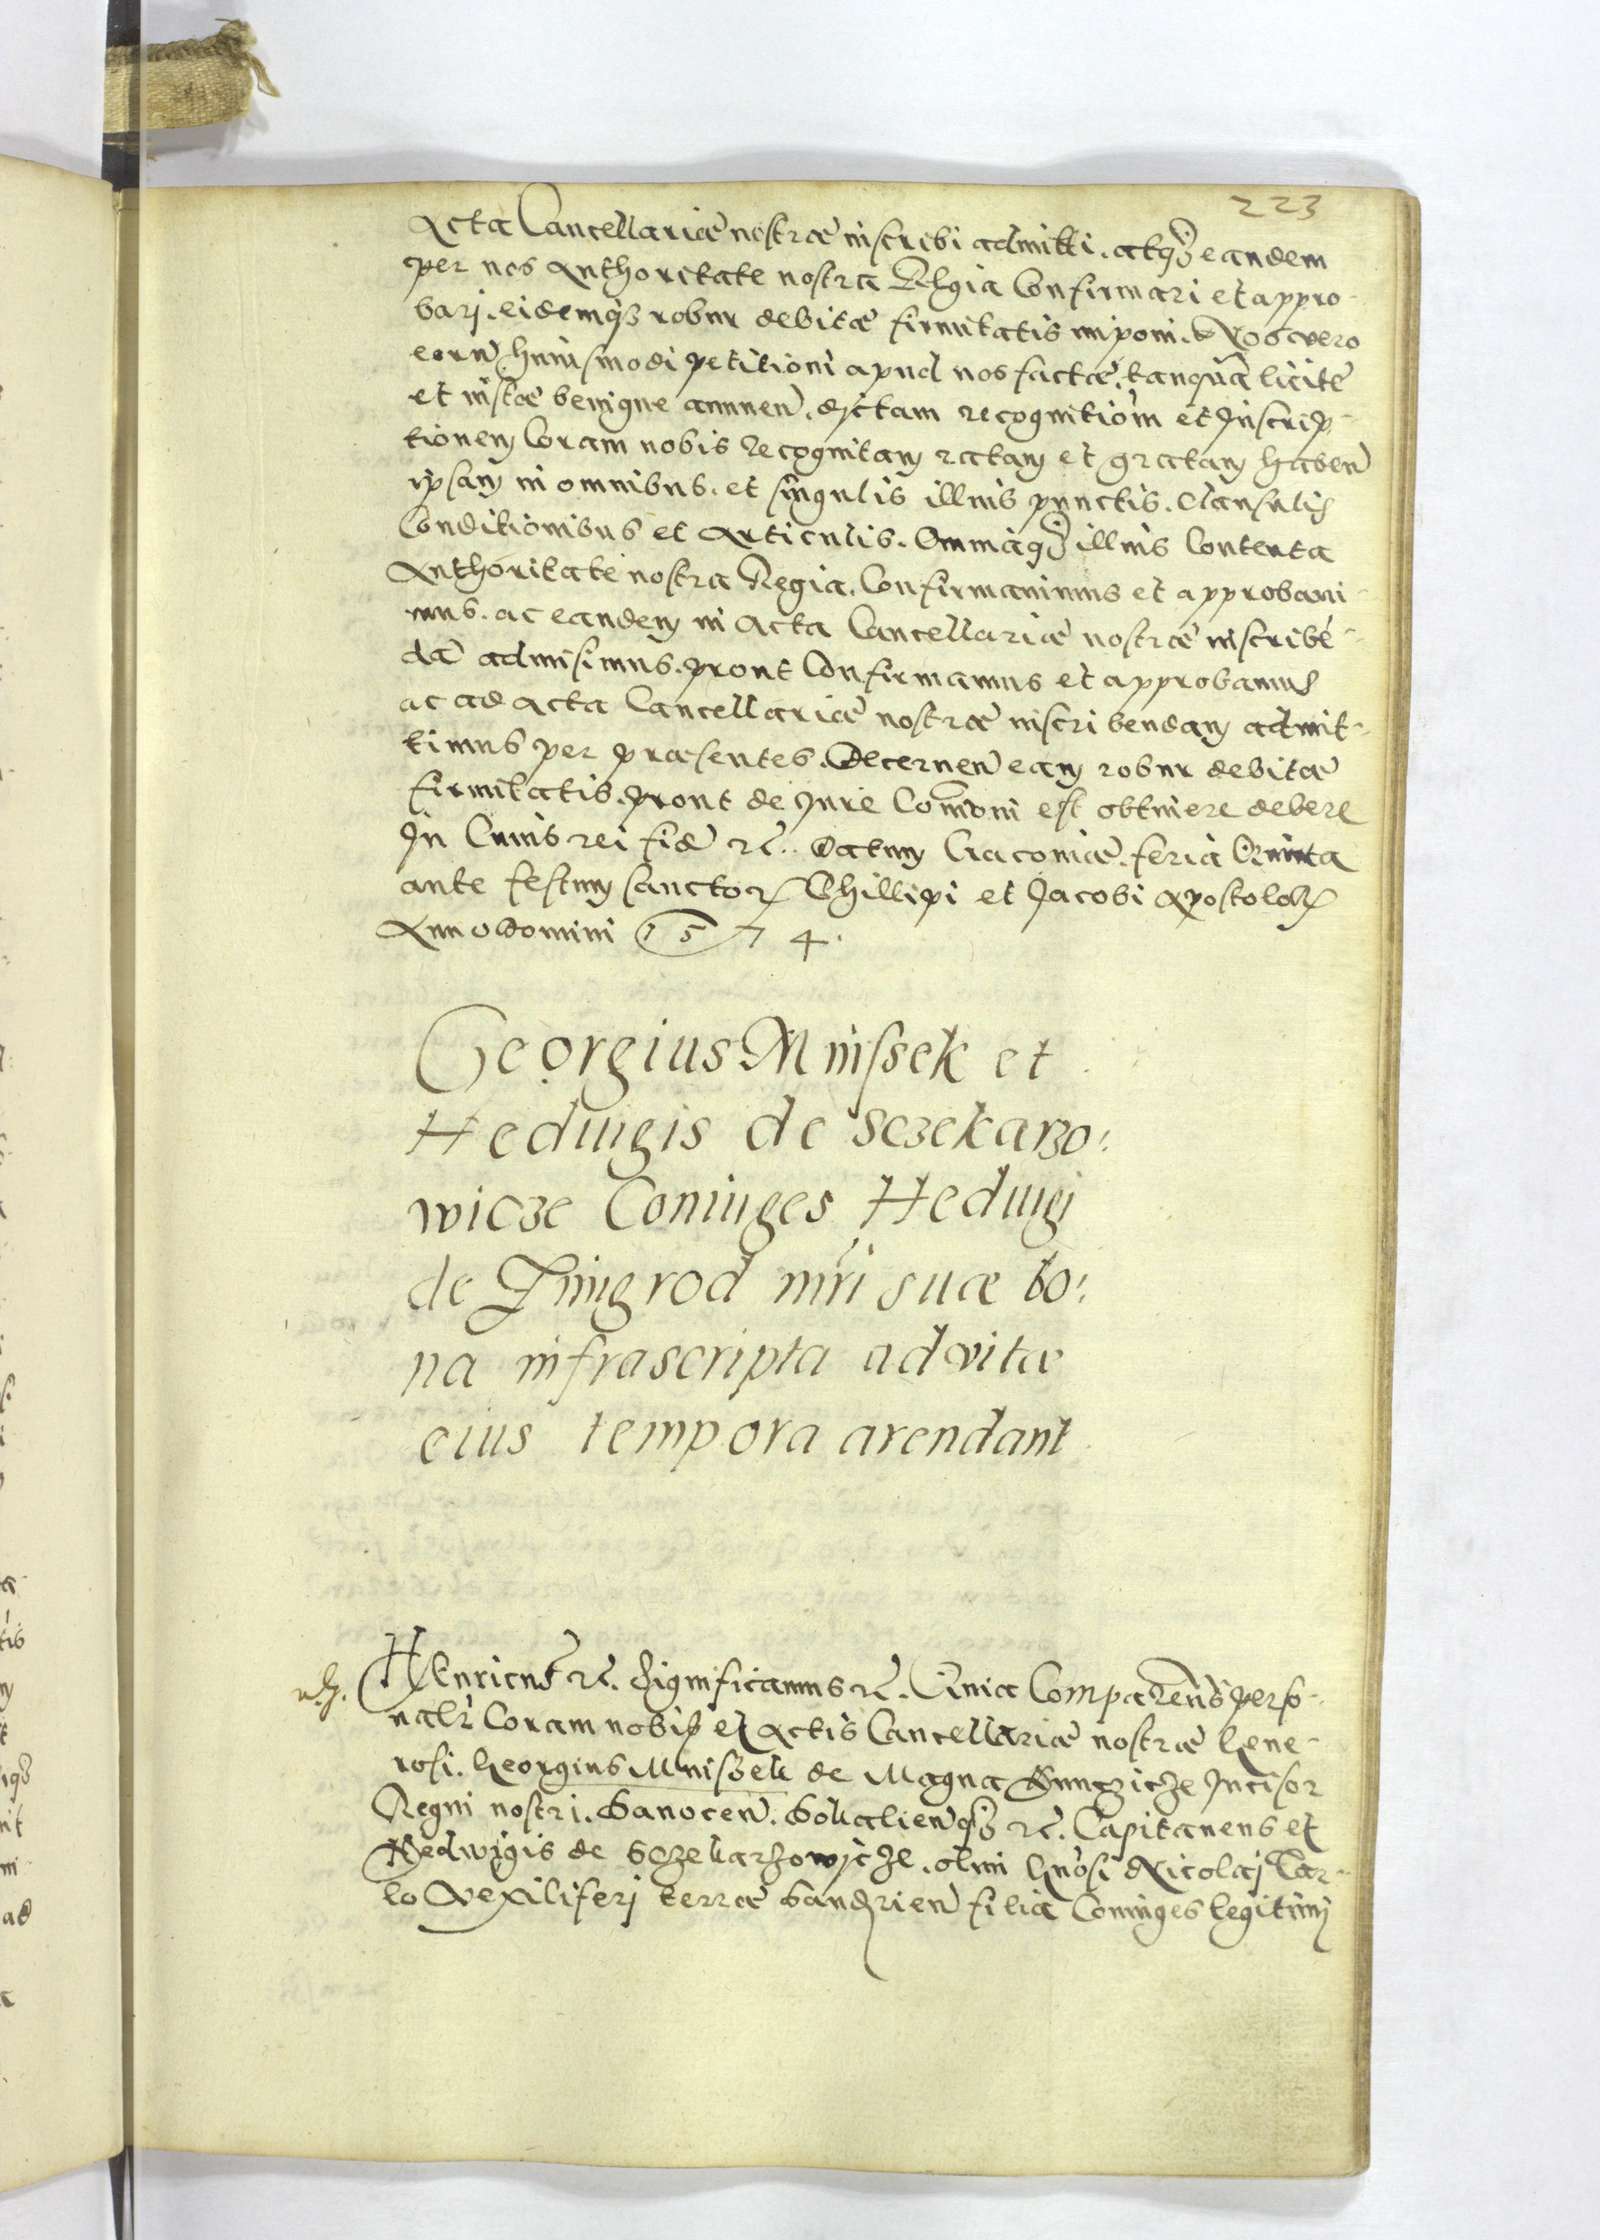 223
Acta Cancellariæ nostræ inscribi admitti. atq3 eandem
per nos Authoritate nostra Regia Confirmari et appro-
barj. eidemq3 robur debitæ firmitatis imponi. Nos vero
eorũ huiusmodi petitioni apud nos factæ. tanquã licitæ
et iustæ benigne annuen̄. dictam recognitiom̄ et Inscrip-
tionem Coram nobis Recognitam ratam et gratam haben̄
ipsam in omnibus. et singulis illius punctis. Clausulis
Conditionibus et Articulis. Omniaq3 illius Contenta
Authoritate nostra Regia. Confirmauimus et approbaui-
mus. ac eandem in Acta Cancellariæ nostræ inscribē-
dā admisimus. prout Confirmamus et approbamus
ac ad Acta Cancellariæ nostræ inscribendam admit-
timus per præsentes. Decernen̄ eam robur debitæ
firmitatis. prout de Jure Com̄oni est obtinere debere
In Cuius rei fidē etc. Datum Cracouiæ. feria Quinta
ante festum sanctorꝝ Phillipi et Jacobi Apostolorꝝ
Anno Domini 1574.
Georgius Mnissek et
Heduigis de Sczekarzo:
wicze Coniuges Heduigi
de Zmigrod mr̄i suæ bo:
na infrascripta ad vitæ
eius tempora arendant
HEnricus etc. Significamus etc. Quia Comparen̄s perso-
nalr̄ Coram nobis et Actis Cancellariæ nostræ Gene-
rosi. Georgius Mniszek de Magna Kunczicze Incisor
Regni nostri. Sanocen̄. Sokalien̄q3 etc. Capitaneus et
Hedwigis de Sczekarzowycze. olim Gn̄osi Nicolaj Tar-
lo Vexiliferj terræ Sandzien̄ filia Coniuges legitimj